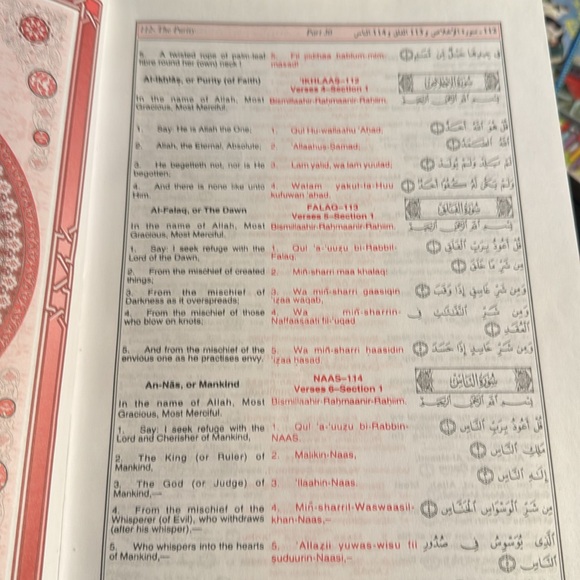 112- The Purity Part 30
5. A twisted rope of palm-leaf 5. Fii jiidihaa hablum-mim-
fibre round her (own) neck ! masad!
Al-Ikhlâs, or Purity (of Faith) IKHLAAS–112
Verses 4–Section 1
In the name of Allah, Most Bismillaahir-Rahmaanir-Rahim.
Gracious, Most Merciful.
سُورَةُ الْإِخْلَاصِ
1. Say: He is Allah the One; 1. Qul Hu-wallaahu 'Ahad;
قُلْ هُوَ اللَّهُ أَحَدٌ
2. Allah, the Eternal, Absolute; 2. 'Allaahus-Samad;
اللَّهُ الصَّمَدُ
3. He begetteth not, nor is He 3. Lam yalid, wa lam yuulad;
begotten;
لَمْ يَلِدْ وَلَمْ يُولَدْ
4. And there is none like unto 4. Walam yakul-la-Huu
Him. kufuwan 'ahad.
وَلَمْ يَكُنْ لَهُ كُفُوًا أَحَدٌ
Al-Falaq, or The Dawn FALAQ–113
Verses 5–Section 1
سُورَةُ الْفَلَقِ
In the name of Allah, Most Bismillaahir-Rahmaanir-Rahim.
Gracious, Most Merciful.
1. Say: I seek refuge with the 1. Qul 'a-'uuzu bi-Rabbil-
Lord of the Dawn, Falaq,
قُلْ أَعُوذُ بِرَبِّ الْفَلَقِ
2. From the mischief of created 2. Miñ-sharri maa khalaq;
things;
مِنْ شَرِّ مَا خَلَقَ
3. From the mischief of 3. Wa miñ-sharri gaasiqin
Darkness as it overspreads; 'izaa waqab,
وَمِنْ شَرِّ غَاسِقٍ إِذَا وَقَبَ
4. From the mischief of those 4. Wa miñ-sharrin-
who blow on knots; Naffaasaati fil-'uqad
وَمِنْ شَرِّ النَّفَّاثَاتِ فِي
الْعُقَدِ
5. And from the mischief of the 5. Wa miñ-sharri haasidin
envious one as he practises envy. 'izaa hasad.
وَمِنْ شَرِّ حَاسِدٍ إِذَا حَسَدَ
An-Nâs, or Mankind NAAS–114
Verses 6–Section 1
سُورَةُ النَّاسِ
In the name of Allah, Most Bismillaahir-Rahmaanir-Rahim.
Gracious, Most Merciful.
1. Say: I seek refuge with the 1. Qul 'a-'uuzu bi-Rabbin-
Lord and Cherisher of Mankind, NAAS.
قُلْ أَعُوذُ بِرَبِّ النَّاسِ
2. The King (or Ruler) of 2. Malikin-Naas,
Mankind,
مَلِكِ النَّاسِ
3. The God (or Judge) of 3. 'Ilaahin-Naas.
Mankind,—
إِلَٰهِ النَّاسِ
4. From the mischief of the 4. Miñ-sharril-Waswaasil-
Whisperer (of Evil), who withdraws khan-Naas,–
(after his whisper),—
مِنْ شَرِّ الْوَسْوَاسِ الْخَنَّاسِ
5. Who whispers into the hearts 5. 'Allazii yuwas-wisu fii
of Mankind,— suduurin-Naasi,–
الَّذِي يُوَسْوِسُ فِي صُدُورِ
النَّاسِ